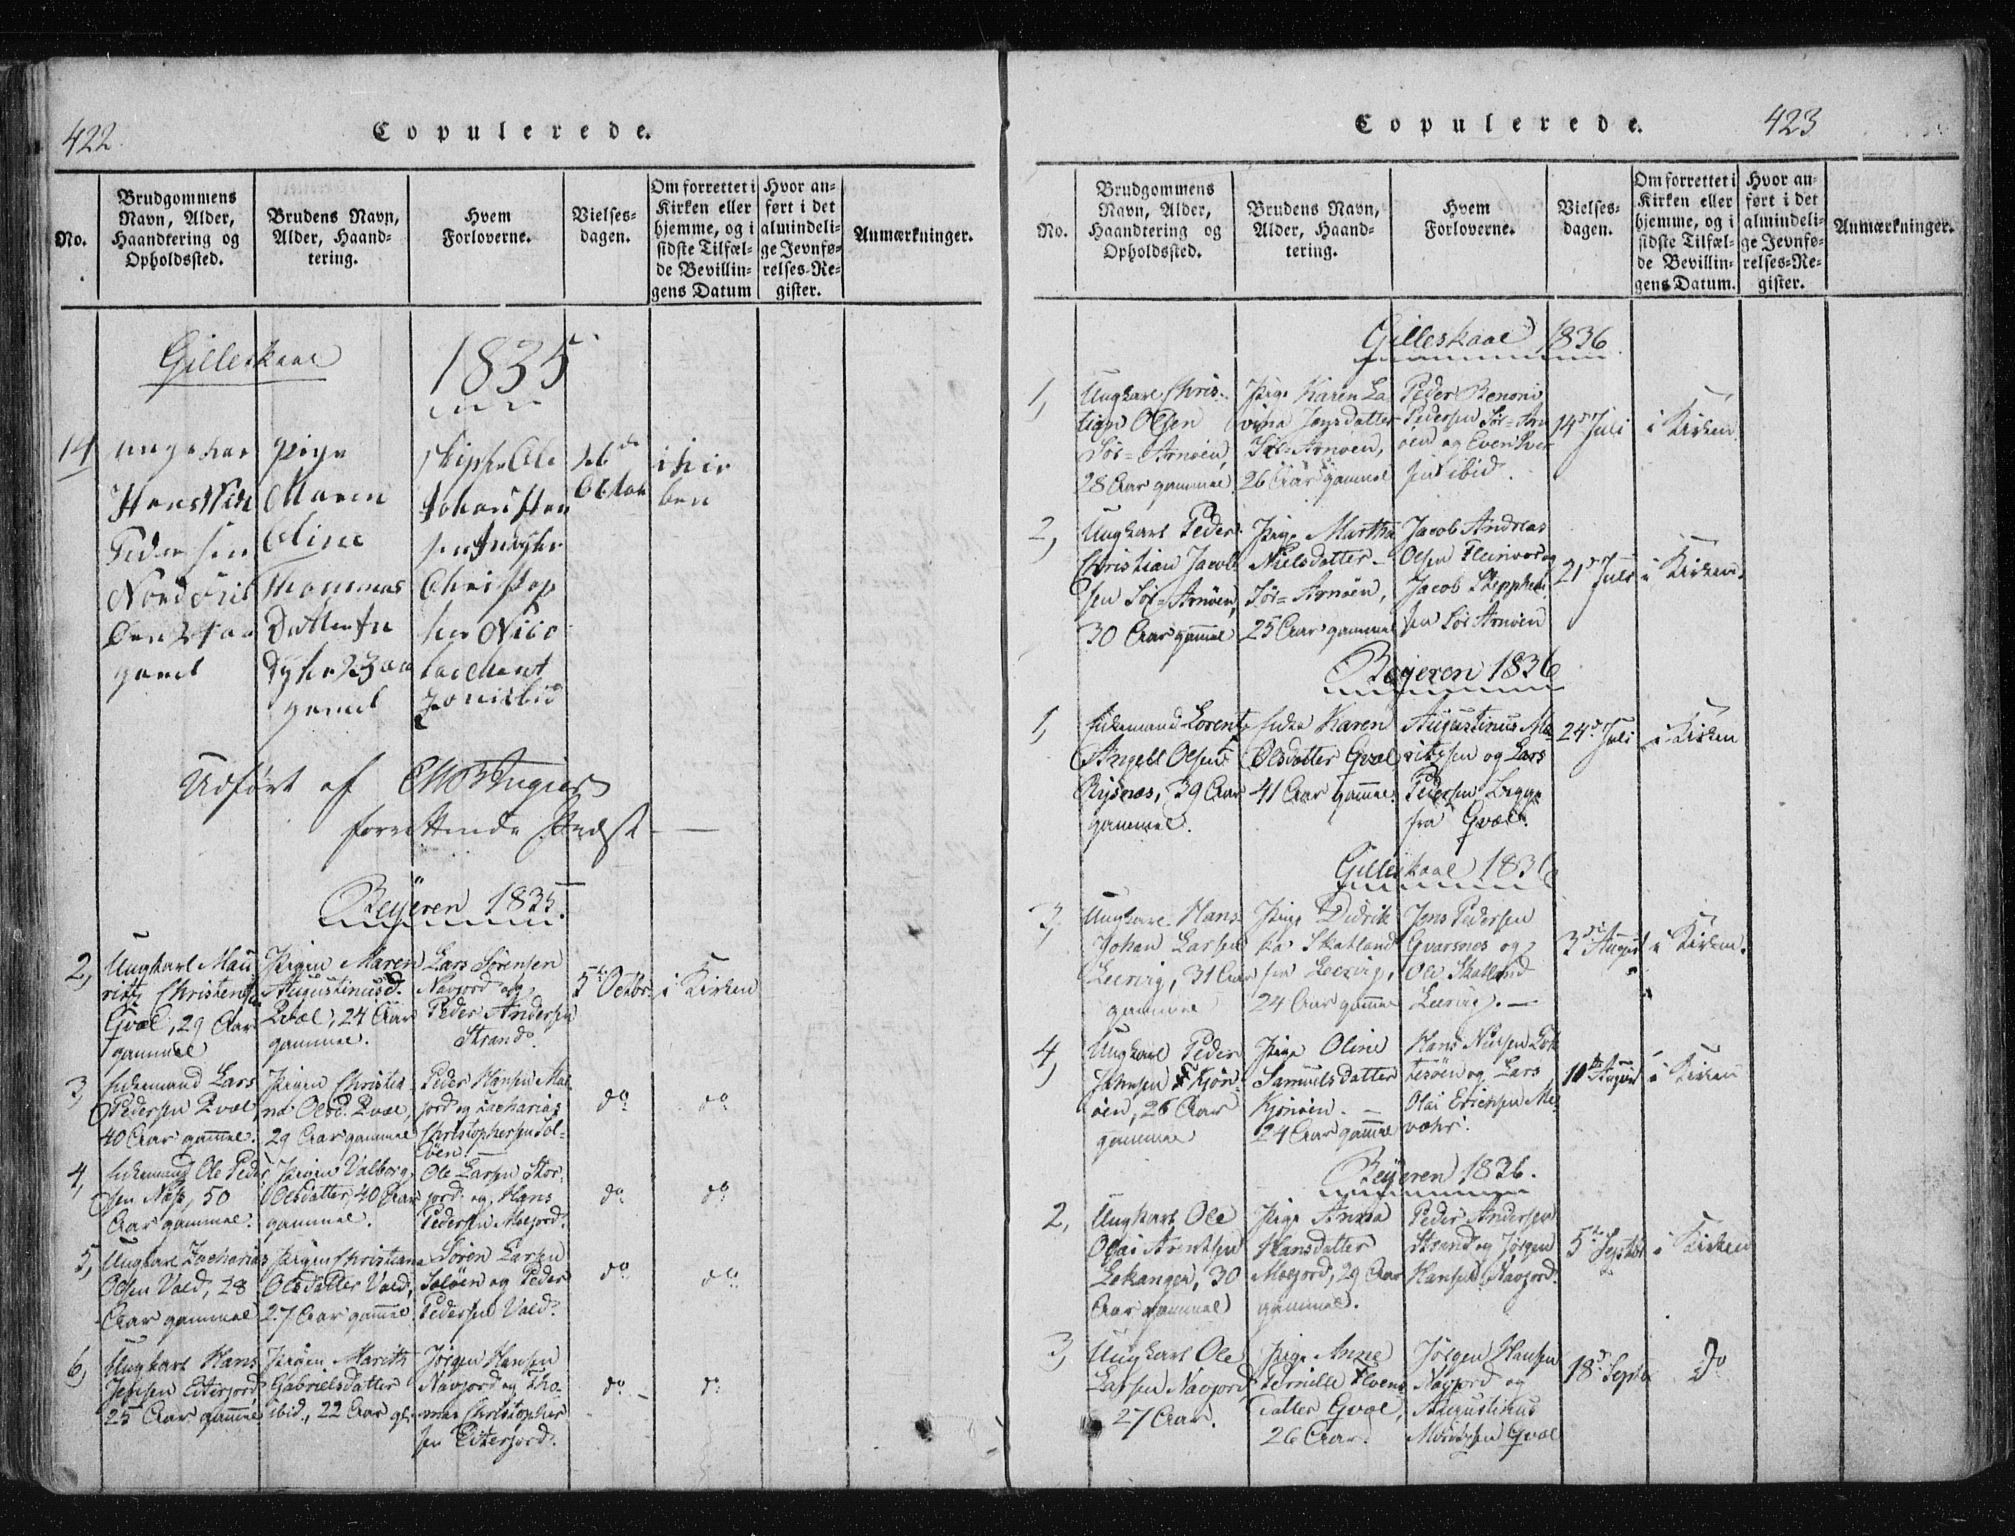 422.
Copulerede.
No.
Brudgommens
Navn, Alder,
Haandtering og
Opholdssted.
Brudens Navn,
Alder, Haand-
tering.
Hvem
Forloverne.
Vielses-
dagen.
Om forrettet i
Kirken eller
hjemme, og i
sidste Tilfæl-
de Bevillin-
gens Datum
Hvor an-
ført i det
almindeli-
ge Jevnfø-
relses-Re-
gister.
Anmærkninger.
Gilleskaal 1835
14
ungekar
Hans
Pedersen
gamel
pige
Maren
Oline
Thommas
Datter
23 aa
gamel
skipper Ole
Johans
Christop
her Nico
lai
26de
Oktob
i kir
ken
Udført af
forrettende Præst
Beyeren 1835.
2,
Ungkarl Mau
ritz Christens
Gvæl, 29 Aar
gammel
Pigen Maren
Augustinusd.
Qvæl, 24 Aar
gammel.
Lars Sørensen
Navjord og
Peder Andersen
Strand.
5te Octobr.
i Kirken
3,
Enkemand Lars
Pedersen Qvæl
40 Aar gamel.
Pigen Christia-
na Olsd. Qvæl,
29 Aar gammel
Peder Hansen Mol
jord og Zacharias
Christophersen Sol-
øen
do
do
4,
Enkemand Ole Peder
sen Næss, 50
Aar gammel.
Pigen Valborg
Olsdatter, 40 Aar
gammel.
Ole Larsen Stor-
jord og Hans
Pedersen Moljord.
do
do
5,
Ungkarl Zacharias
Olsen Vold, 28
Aar gammel
Pigen Christiana
Olsdatter Vold,
27 Aar gammel.
Sören Larsen
Soløen og Peder
Pedersen Vold.
do
do
6,
Ungkarl Hans
Jensen Eiterjord
25 Aar gammel
Pigen Marith
Gabrielsdatter
ibid., 22 Aar gl.
Jørgen Hansen
Navjord og Tho-
mas Christopher
sen Eiterjord.
do
do
Copulerede.
423
No.
Brudgommens
Navn, Alder,
Haandtering og
Opholdssted.
Brudens Navn,
Alder, Haand-
tering.
Hvem
Forloverne.
Vielses-
dagen.
Om forrettet i
Kirken eller
hjemme, og i
sidste Tilfæl-
de Bevillin-
gens Datum.
Hvor an-
ført i det
almindeli-
ge Jevnfø-
relses-Re-
gister.
Anmærkninger.
Gilleskaal 1836
1,
Ungkarl Chris-
tian Olsen
Sör-Arnøen,
28 Aar gammel.
Pige Karen La
vina Jensdatter
Sör-Arnøen,
26 Aar gammel
Peder Benoni
Pedersen Sör-Arn
øen og Even Iver
sen ibid.
14de Juli
i Kirken
2,
Ungkarl Peder
Christian Jacob
sen Sör-Arnøen,
30 Aar gammel
Pige Martha
Nielsdatter
Sör-Arnøen,
25 Aar gammel
Jacob Andreas
Olsen Fleinvær og
Jacob Stephen
sen Sör Arnøen
21de Juli
i Kirken.
Beyeren 1836
1,
Enkemand Lorentz
Angell Olsen
Rysnæs, 39 Aar
gammel.
Enke Karen
Olsdatter Gvæl
41 Aar gammel.
Augustinus Mau
ritzsen og Lars
Pedersen begge
fra Gvæl.
24de Juli
i Kirken
Gilleskaal 1836
3,
Ungkarl Hans
Johan Larsen
Leervig, 31 Aar
gammel
Pige Didrik
ka Skatland
fra Leervig,
24 Aar gammel
Jens Pedersen
Gvarsnes og
Ole Skatland
Leervig. —
3de August
i Kirken.
4,
Ungkarl Peder
Johnsen Kjøn-
øen, 26 Aar
gammel
Pige Oline
Samuelsdatter
Kjønøen. —
24 Aar gammel
Hans Nielsen
og Lars
Olai Erichsen Me
vær.
10de August
i Kirken
Beyeren 1836.
2,
Ungkarl Ole
Olai Arentsen
Lekanger, 30
Aar gammel
Pige Anna
Hansdatter
Moljord, 29 Aar
gammel.
Peder Andersen
Strand og Jørgen
Hansen Navjord.
5te Septbr
i Kirken
3,
Ungkarl Ole
Larsen Navjord
27 Aar.
Pige Anne
Pernille Evens
datter Gvæl,
26 Aar.
Jørgen Hansen
Navjord og
Augustinus
Mauritzsen Gvæl
18de Septbr
Do